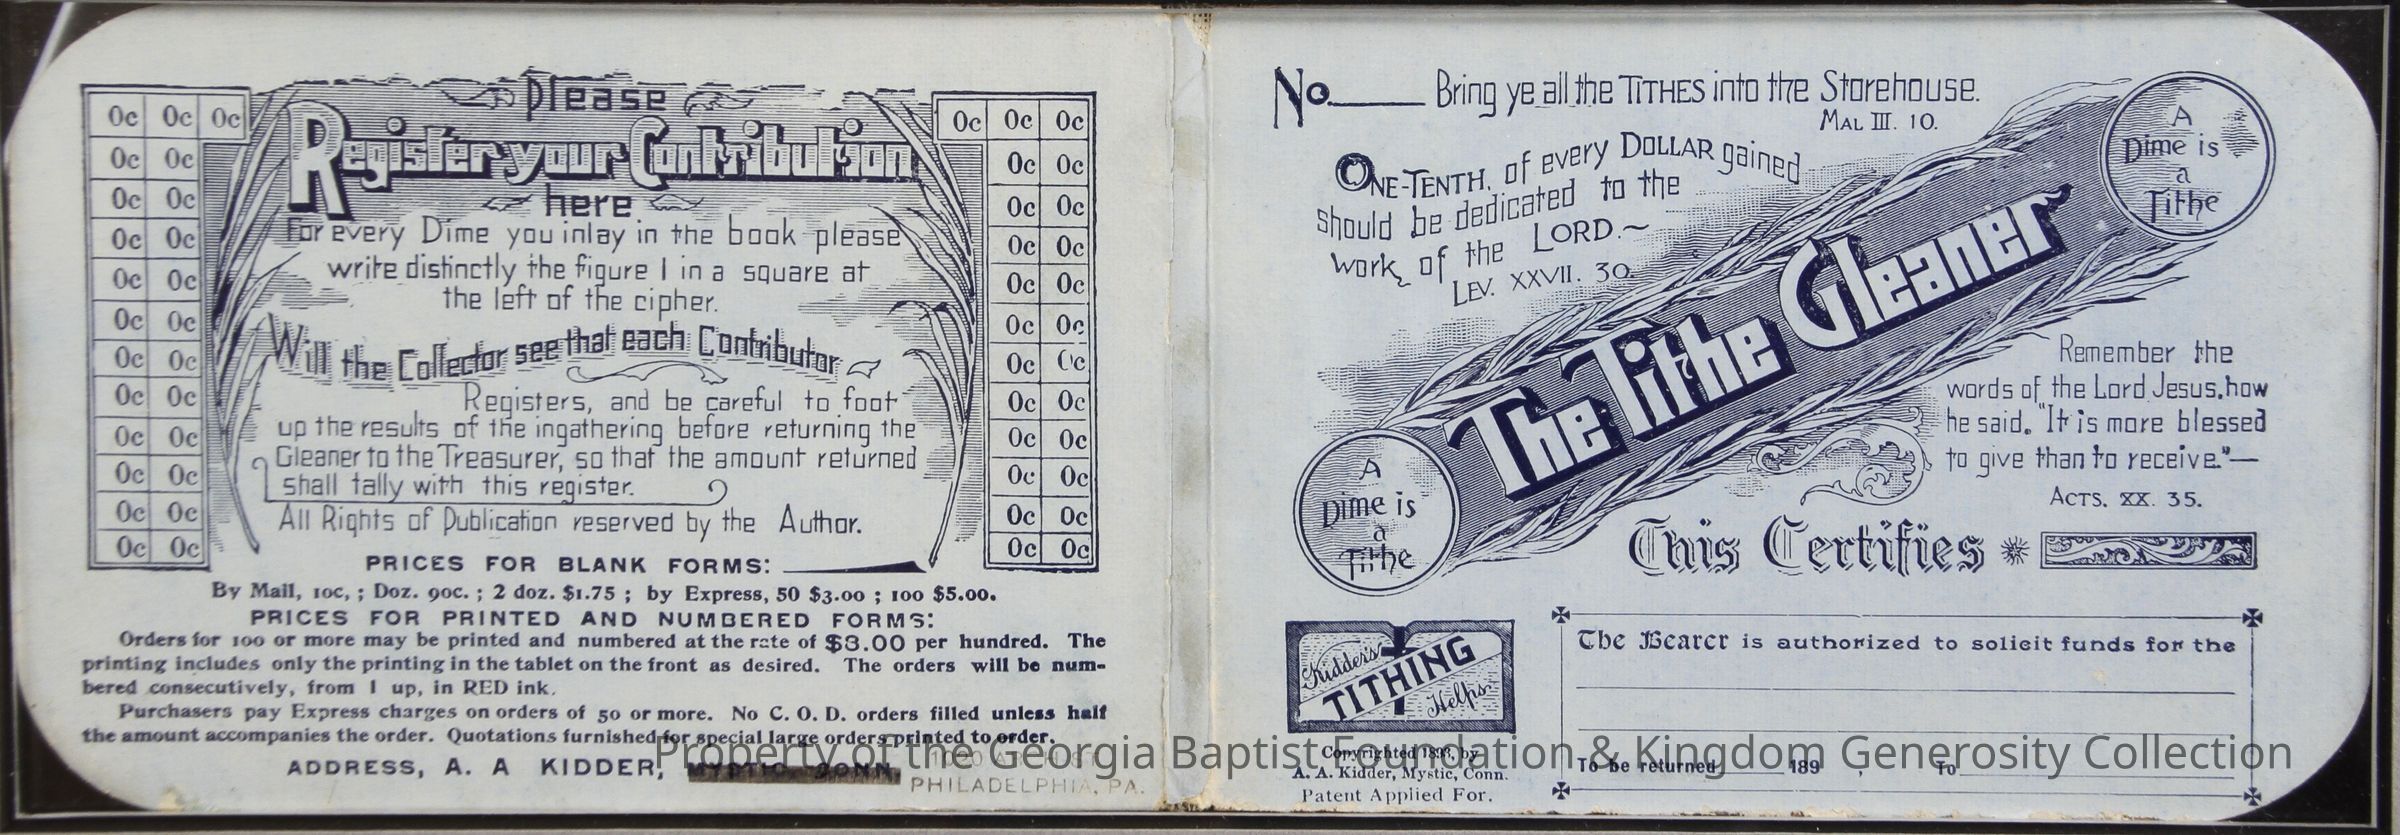 0c 0c 0c
0c 0c
0c 0c
0c 0c
0c 0c
0c 0c
0c 0c
0c 0c
0c 0c
0c 0c
0c 0c
0c 0c
Please
Register your Contribution
here
For every Dime you inlay in the book please
write distinctly the figure 1 in a square at
the left of the cipher.
Will the Collector see that each Contributor
Registers, and be careful to foot
up the results of the ingathering before returning the
Gleaner to the Treasurer, so that the amount returned
shall tally with this register.
All Rights of Publication reserved by the Author.
0c 0c 0c
0c 0c
0c 0c
0c 0c
0c 0c
0c 0c
0c 0c
0c 0c
0c 0c
0c 0c
0c 0c
0c 0c
PRICES FOR BLANK FORMS:
By Mail, 10c, ; Doz. 90c. ; 2 doz. $1.75 ; by Express, 50 $3.00 ; 100 $5.00.
PRICES FOR PRINTED AND NUMBERED FORMS:
Orders for 100 or more may be printed and numbered at the rate of $3.00 per hundred. The
printing includes only the printing in the tablet on the front as desired. The orders will be num-
bered consecutively, from 1 up, in RED ink.
Purchasers pay Express charges on orders of 50 or more. No C. O. D. orders filled unless half
the amount accompanies the order. Quotations furnished for special large orders printed to order.
ADDRESS, A. A KIDDER, MYSTIC CONN
PHILADELPHIA, PA.
No. Bring ye all the TITHES into the Storehouse.
MAL III. 10.
ONE-TENTH, of every DOLLAR gained
should be dedicated to the
work of the LORD.~
LEV. XXVII. 30.
A
Dime is
a
Tithe
The Tithe Gleaner
A
Dime is
a
Tithe
Remember the
words of the Lord Jesus, how
he said, "It is more blessed
to give than to receive."—
ACTS. XX. 35.
This Certifies
Kidder's
TITHING
Helps
Copyrighted 1893, by
A. A. Kidder, Mystic, Conn.
Patent Applied For.
The Bearer is authorized to solicit funds for the
To be returned 189 , To
Property of the Georgia Baptist Foundation & Kingdom Generosity Collection